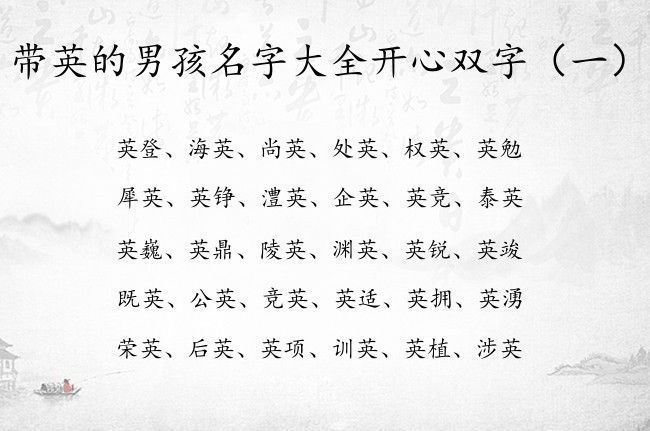 带英的男孩名字大全开心双字（一）
英登、海英、尚英、处英、权英、英勉
犀英、英铮、澧英、企英、英竞、泰英
英巍、英鼎、陵英、渊英、英锐、英竣
既英、公英、竞英、英适、英拥、英湧
荣英、后英、英项、训英、英植、涉英